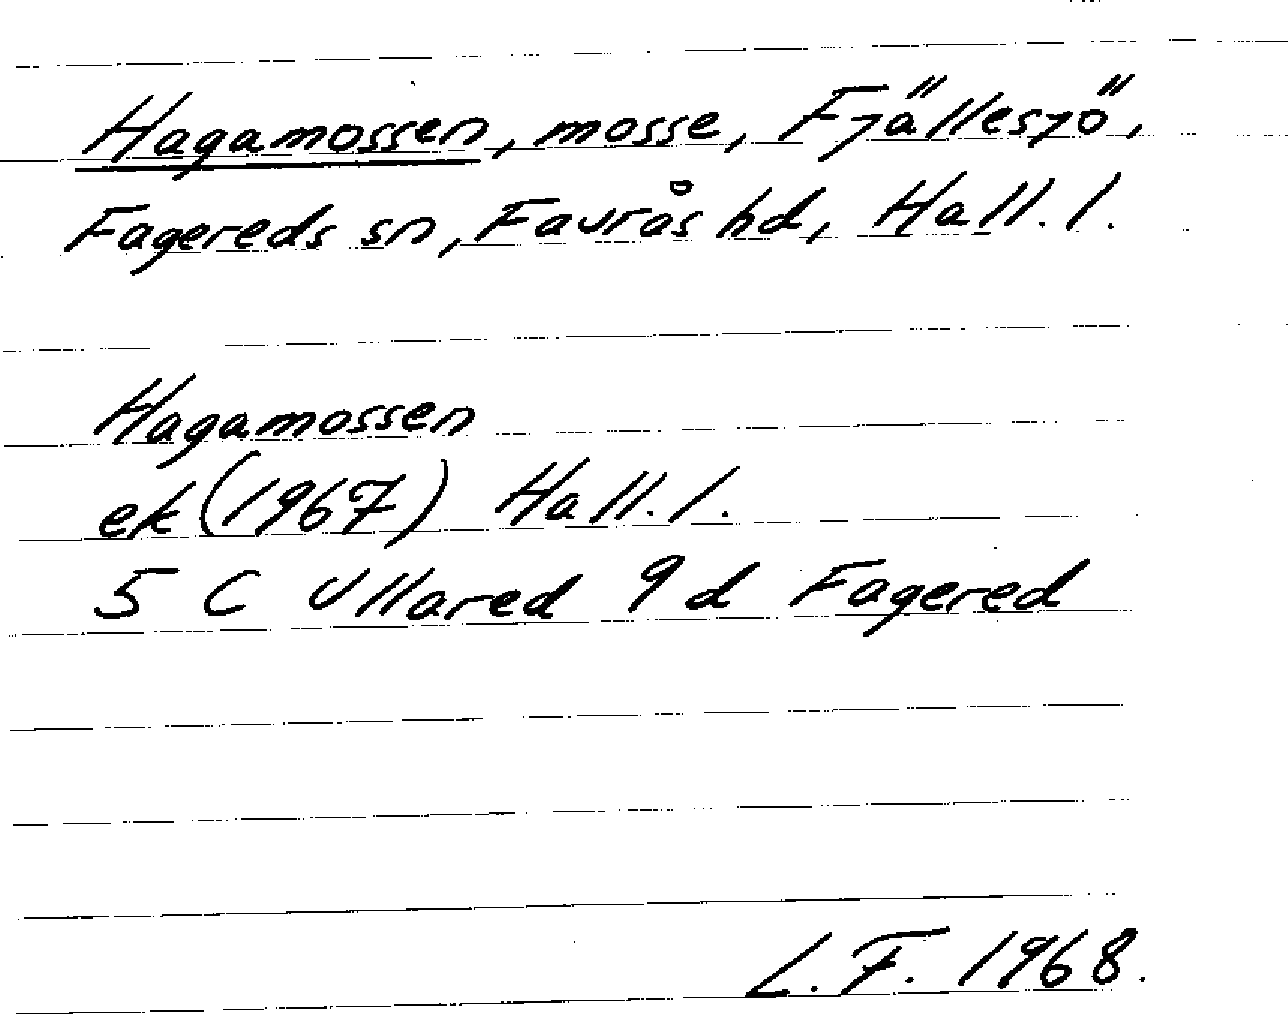 Hagamossen, mosse, Fjällesjö,
Fagereds sn, Faurås hd, Hall. l.
Hagamossen
ek (1967) Hall. l.
5 C Ullared 9 d Fagered
L. F. 1968.